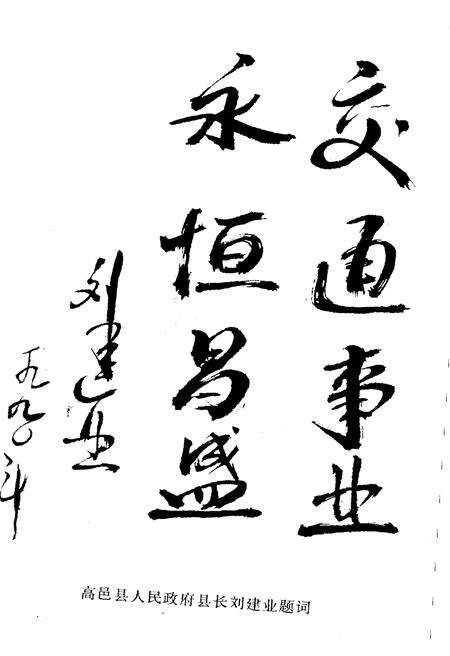 交通事业
永恒昌盛
刘建业
一九九〇年
高邑县人民政府县长刘建业题词